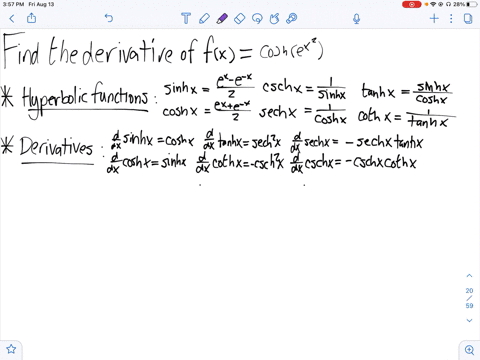 3:57 PM Fri Aug 13 28%
Find the derivative of f(x) = cosh(e^x²)
* Hyperbolic functions : sinhx = (e^x - e^-x)/2 cschx = 1/sinhx tanhx = sinhx/coshx
coshx = (e^x + e^-x)/2 sechx = 1/coshx cothx = 1/tanhx
* Derivatives : d/dx sinhx = coshx d/dx tanhx = sech²x d/dx sechx = - sechx tanhx
d/dx coshx = sinhx d/dx cothx = -csch²x d/dx cschx = - cschx cothx
20
/
59